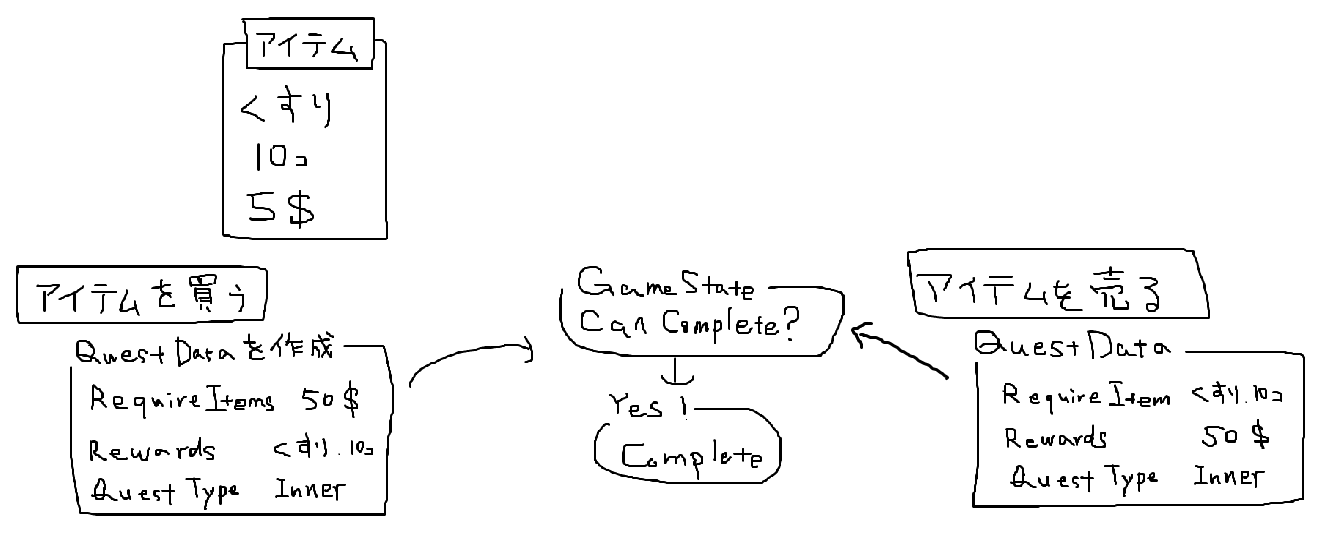 アイテム
くすり
10コ
5$
アイテムを買う
QuestDataを作成
RequireItems 50$
Rewards くすり.10コ
Quest Type Inner
GameState
Can Complete?
Yes!
Complete
アイテムを売る
QuestData
RequireItem くすり.10コ
Rewards 50$
Quest Type Inner